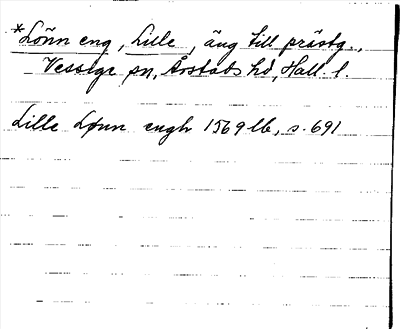 *Lönn eng, Lille, äng till prästg.,
Vessige sn, Årstads hd, Hall. l.
Lille Lønn engh 1569 lb, s. 691